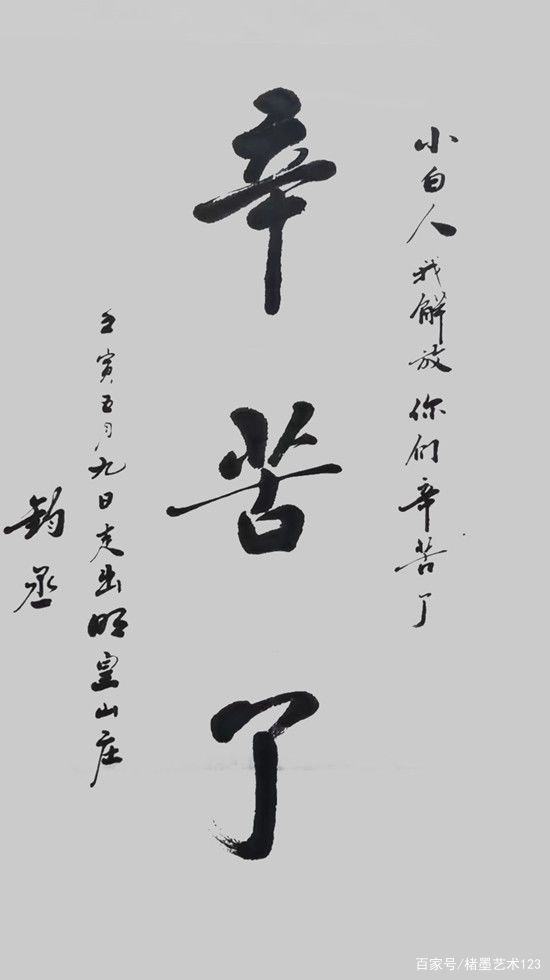 小白人我解放你们辛苦了
辛苦了
壬寅五月九日走出明皇山庄
钧丞
百家号/楮墨艺术123